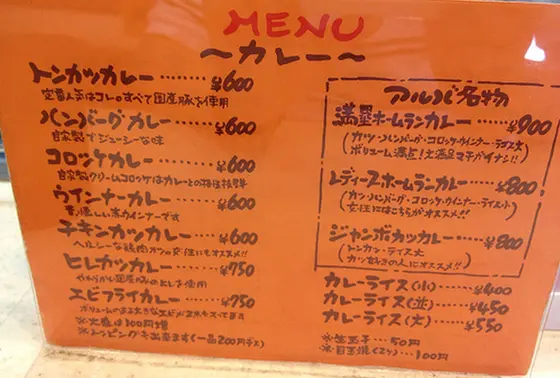 MENU
～カレー～
トンカツカレー……¥600
定番人気はコレ。すべて国産豚を使用
ハンバーグカレー……¥600
自家製でジューシーな味
コロッケカレー……¥600
自家製クリームコロッケはカレーとの相性抜群
ウインナーカレー……¥600
懐しい赤ウインナーです
チキンカツカレー……¥600
ヘルシーな鶏肉カツの女性にもオススメ!!
ヒレカツカレー……¥750
やわらかい国産のみのヒレを使用
エビフライカレー……¥750
ボリュームのある大きなエビが
※大盛は100円増
※トッピングも出来ます(一品200円デス)
アルバ名物
満塁ホームランカレー…¥900
(カツ・ハンバーグ・コロッケ・ウインナー・ライス大
ボリューム満点!大満足マチガイナシ!!)
レディースホームランカレー…¥800
(カツ・ハンバーグ・コロッケ・ウインナー・ライス小
女性にはこちらがオススメ!!)
ジャンボカツカレー…¥800
(トンカツ・ライス大
カツ好きの人にオススメ!!)
カレーライス(小)…¥400
カレーライス(並)…¥450
カレーライス(大)…¥550
※生玉子…50円
※目玉焼(2ヶ)…100円